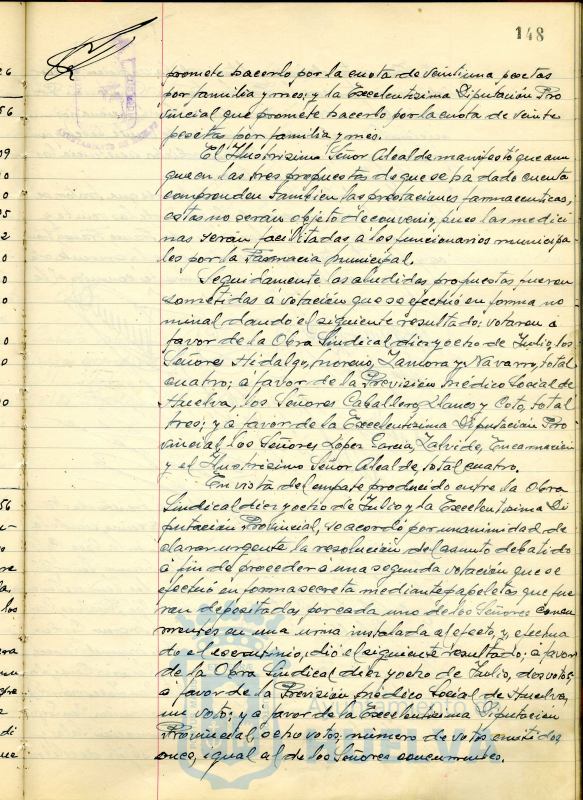 148
promete hacerlo por la cuota de veintiuna pesetas
por familia y mes; y la Excelentísima Diputación Pro
vincial que promete hacerlo por la cuota de veinte
pesetas por familia y mes.
El Ilustrísimo Señor Alcalde manifestó que aun
que en las tres propuestas de que se ha dado cuenta
comprenden tambien las prestaciones farmaceuticas,
estas no serán objeto de convenio, pues las medici
nas serán facilitadas á los funcionarios municipa
les por la Farmacia Municipal.
Seguidamente las aludidas propuestas fueron
sometidas á votación que se efectuó en forma no
minal dando el siguiente resultado: votaron á
favor de la Obra Sindical diez y ocho de Julio, los
Señores Hidalgo, Moreno, Zamora y Navarro, total
cuatro; a favor de la Previsión Médico Social de
Huelva, los Señores Caballero, Llanes y Coto, total
tres; y á favor de la Excelentísima Diputación Pro
vincial, los Señores López García, Zalvide, Encarnación
y el Ilustrísimo Señor Alcalde, total cuatro.
En vista del empate producido entre la Obra
Sindical diez y ocho de Julio y la Excelentísima Di
putación Provincial, se acordó por unanimidad de
clarar urgente la resolución del asunto debatido
á fin de proceder á una segunda votación que se
efectuó en forma secreta mediante papeletas que fue
ran depositadas por cada uno de los Señores concu
rrentes en una urna instalada al efecto, y, efectua
do el escrutinio, dió el siguiente resultado: a favor
de la Obra Sindical diez y ocho de Julio, dos votos;
á favor de la Previsión Médico Social de Huelva,
un voto; y á favor de la Excelentísima Diputación
Provincial, ocho votos; número de votos emitidos
once, igual al de los Señores concurrentes.
Ayuntamiento de
HUELVA